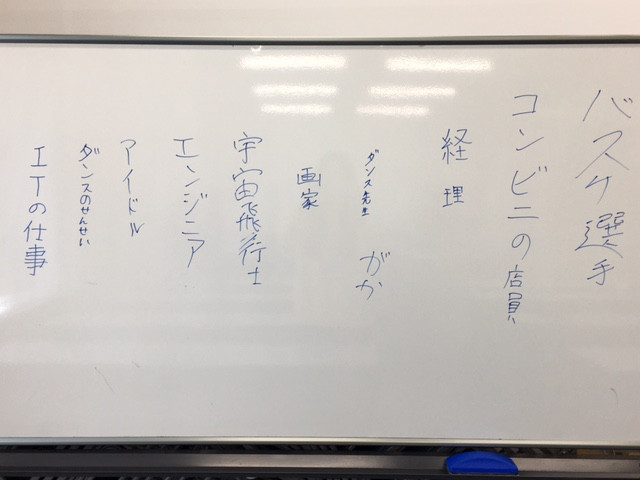 バスケ選手
コンビニの店員
経理
ダンス先生
がか
画家
宇宙飛行士
エンジニア
アイドル
ダンスのせんせい
ITの仕事